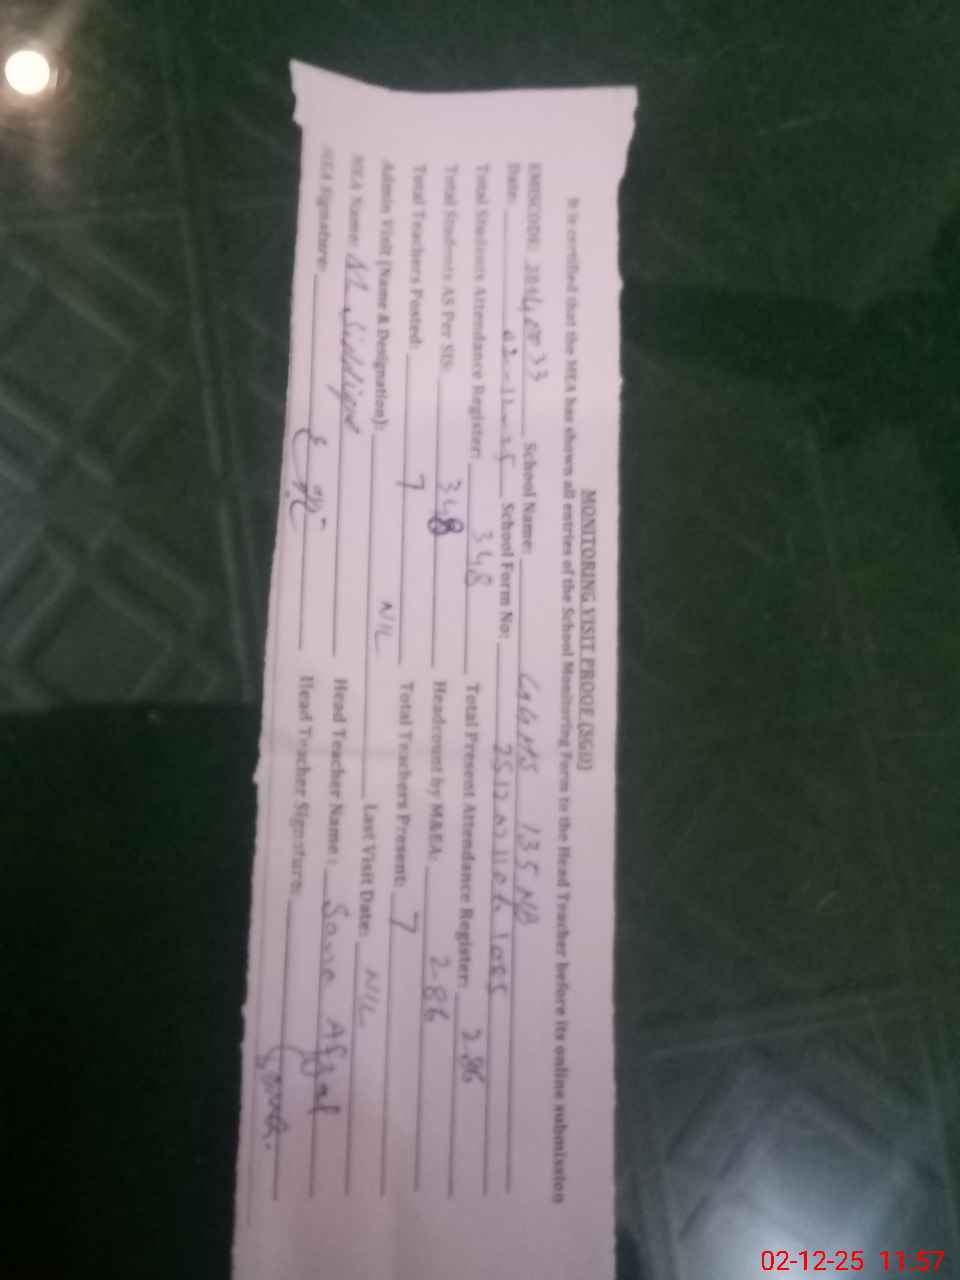 MONITORING VISIT PROOF (SGD)
It is certified that the MEA has shown all entries of the School Monitoring Form to the Head Teacher before its online submission
EMISCODE: School Name: GGMS 135 NB
Date: 02-12-25 School Form No:
Total Students Attendance Register: 348 Total Present Attendance Register: 286
Total Students AS Per SIS: 348 Headcount by M&EA: 286
Total Teachers Posted: 7 Total Teachers Present: 7
Admin Visit (Name & Designation): NIL Last Visit Date: NIL
MEA Name: Head Teacher Name: Sonia Afzal
MEA Signature: Head Teacher Signature: Sonia.
02-12-25 11:57